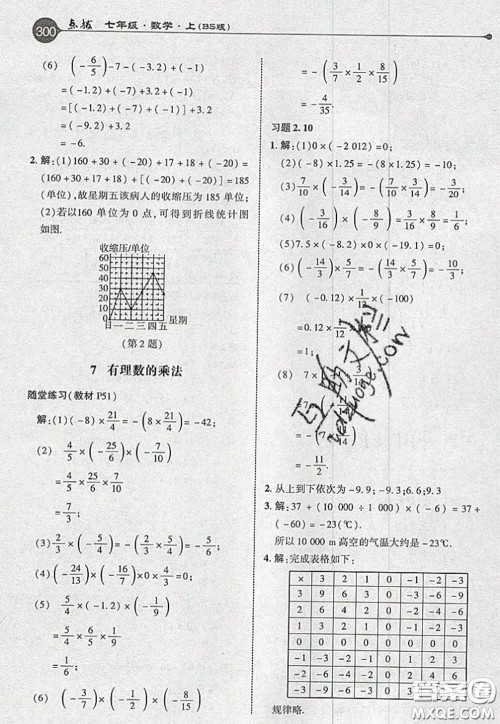 300 点拨 七年级·数学·上(BS版)
(6) (-6/5)-7-(-3.2)+(-1)
=(-1.2)+(-7)+3.2+(-1)
=(-1.2)+3.2+(-7)+(-1)
=[(-1.2)+3.2]+[(-7)+(-1)]
=-6.
2.解:(1)160+30+(-20)+17+18+(-20)=
(160+30+17+18)+[(-20)+(-20)]=185
(单位),故星期五该病人的收缩压为 185 单位;
(2)若以160 单位为 0 点,可得到折线统计图
如图.
收缩压/单位
60
50
40
30
20
10
0
日一二三四五 星期
(第 2 题)
7 有理数的乘法
随堂练习(教材 P51)
解:(1)(-8)×21/4=-(8×21/4)=-42;
(2) 4/5×(-25/6)×(-7/10)
=4/5×25/6×7/10
=7/3;
(3) 2/3×(-5/4)=-(2/3×5/4)=-5/6;
(4)(-24/13)×(-16/7)×0×4/3=0;
(5) 5/4×(-1.2)×(-1/9)
=5/4×6/5×1/9
=1/6;
(6)(-3/7)×(-1/2)×(-8/15)
=-(3/7×1/2×8/15)
=-4/35.
习题 2.10
1.解:(1)0×(-2 012)=0;
(2)(-8)×1.25=-(8×1.25)=-10;
(3) 7/10×(-3/14)=-(7/10×3/14)=-3/20;
(4)(-3/16)×(-8/9)=3/16×8/9=1/6;
(5)7.5×(-8.2)×0×(-19.1)=0;
(6)(-14/3)×5/7=-(14/3×5/7)=-10/3;
(7) (-0.12)×1/12×(-100)
=0.12×1/12
=1/
(8)
=-(7
=-11/2.
2.从上到下依次为-9.9;-6.3;6.6;9.3
3.解:37+(10 000÷1 000)×(-6)=37+
(-60)=-23(℃)
所以 10 000 m 高空的气温大约是-23℃.
4.解:完成表格如下:
× 3 2 1 0 -1 -2 -3
3 9 6 3 0 -3 -6 -9
2 6 4 2 0 -2 -4 -6
1 3 2 1 0 -1 -2 -3
0 0 0 0 0 0 0 0
-1 -3 -2 -1 0 1 2 3
-2 -6 -4 -2 0 2 4 6
-3 -9 -6 -3 0 3 6 9
规律略.
答案圈
MXQE.COM